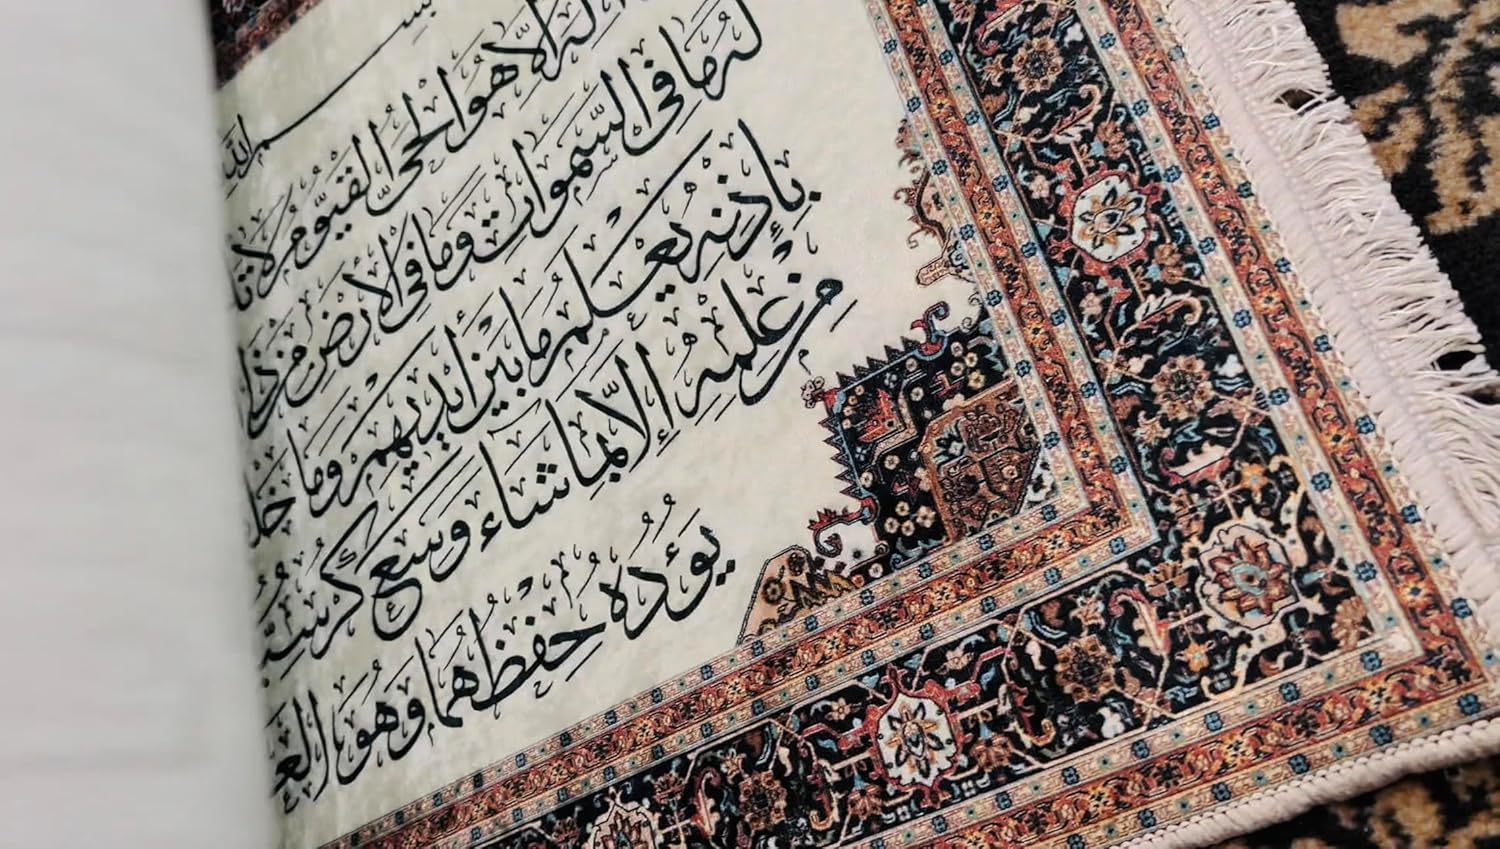 بسم الله
إله إلا هو الحي القيوم لا تأ
له ما في السموات وما في الأرض من ذا
بإذنه يعلم ما بين أيديهم وما خل
من علمه إلا بما شاء وسع كرسيه
يؤده حفظهما وهو الع